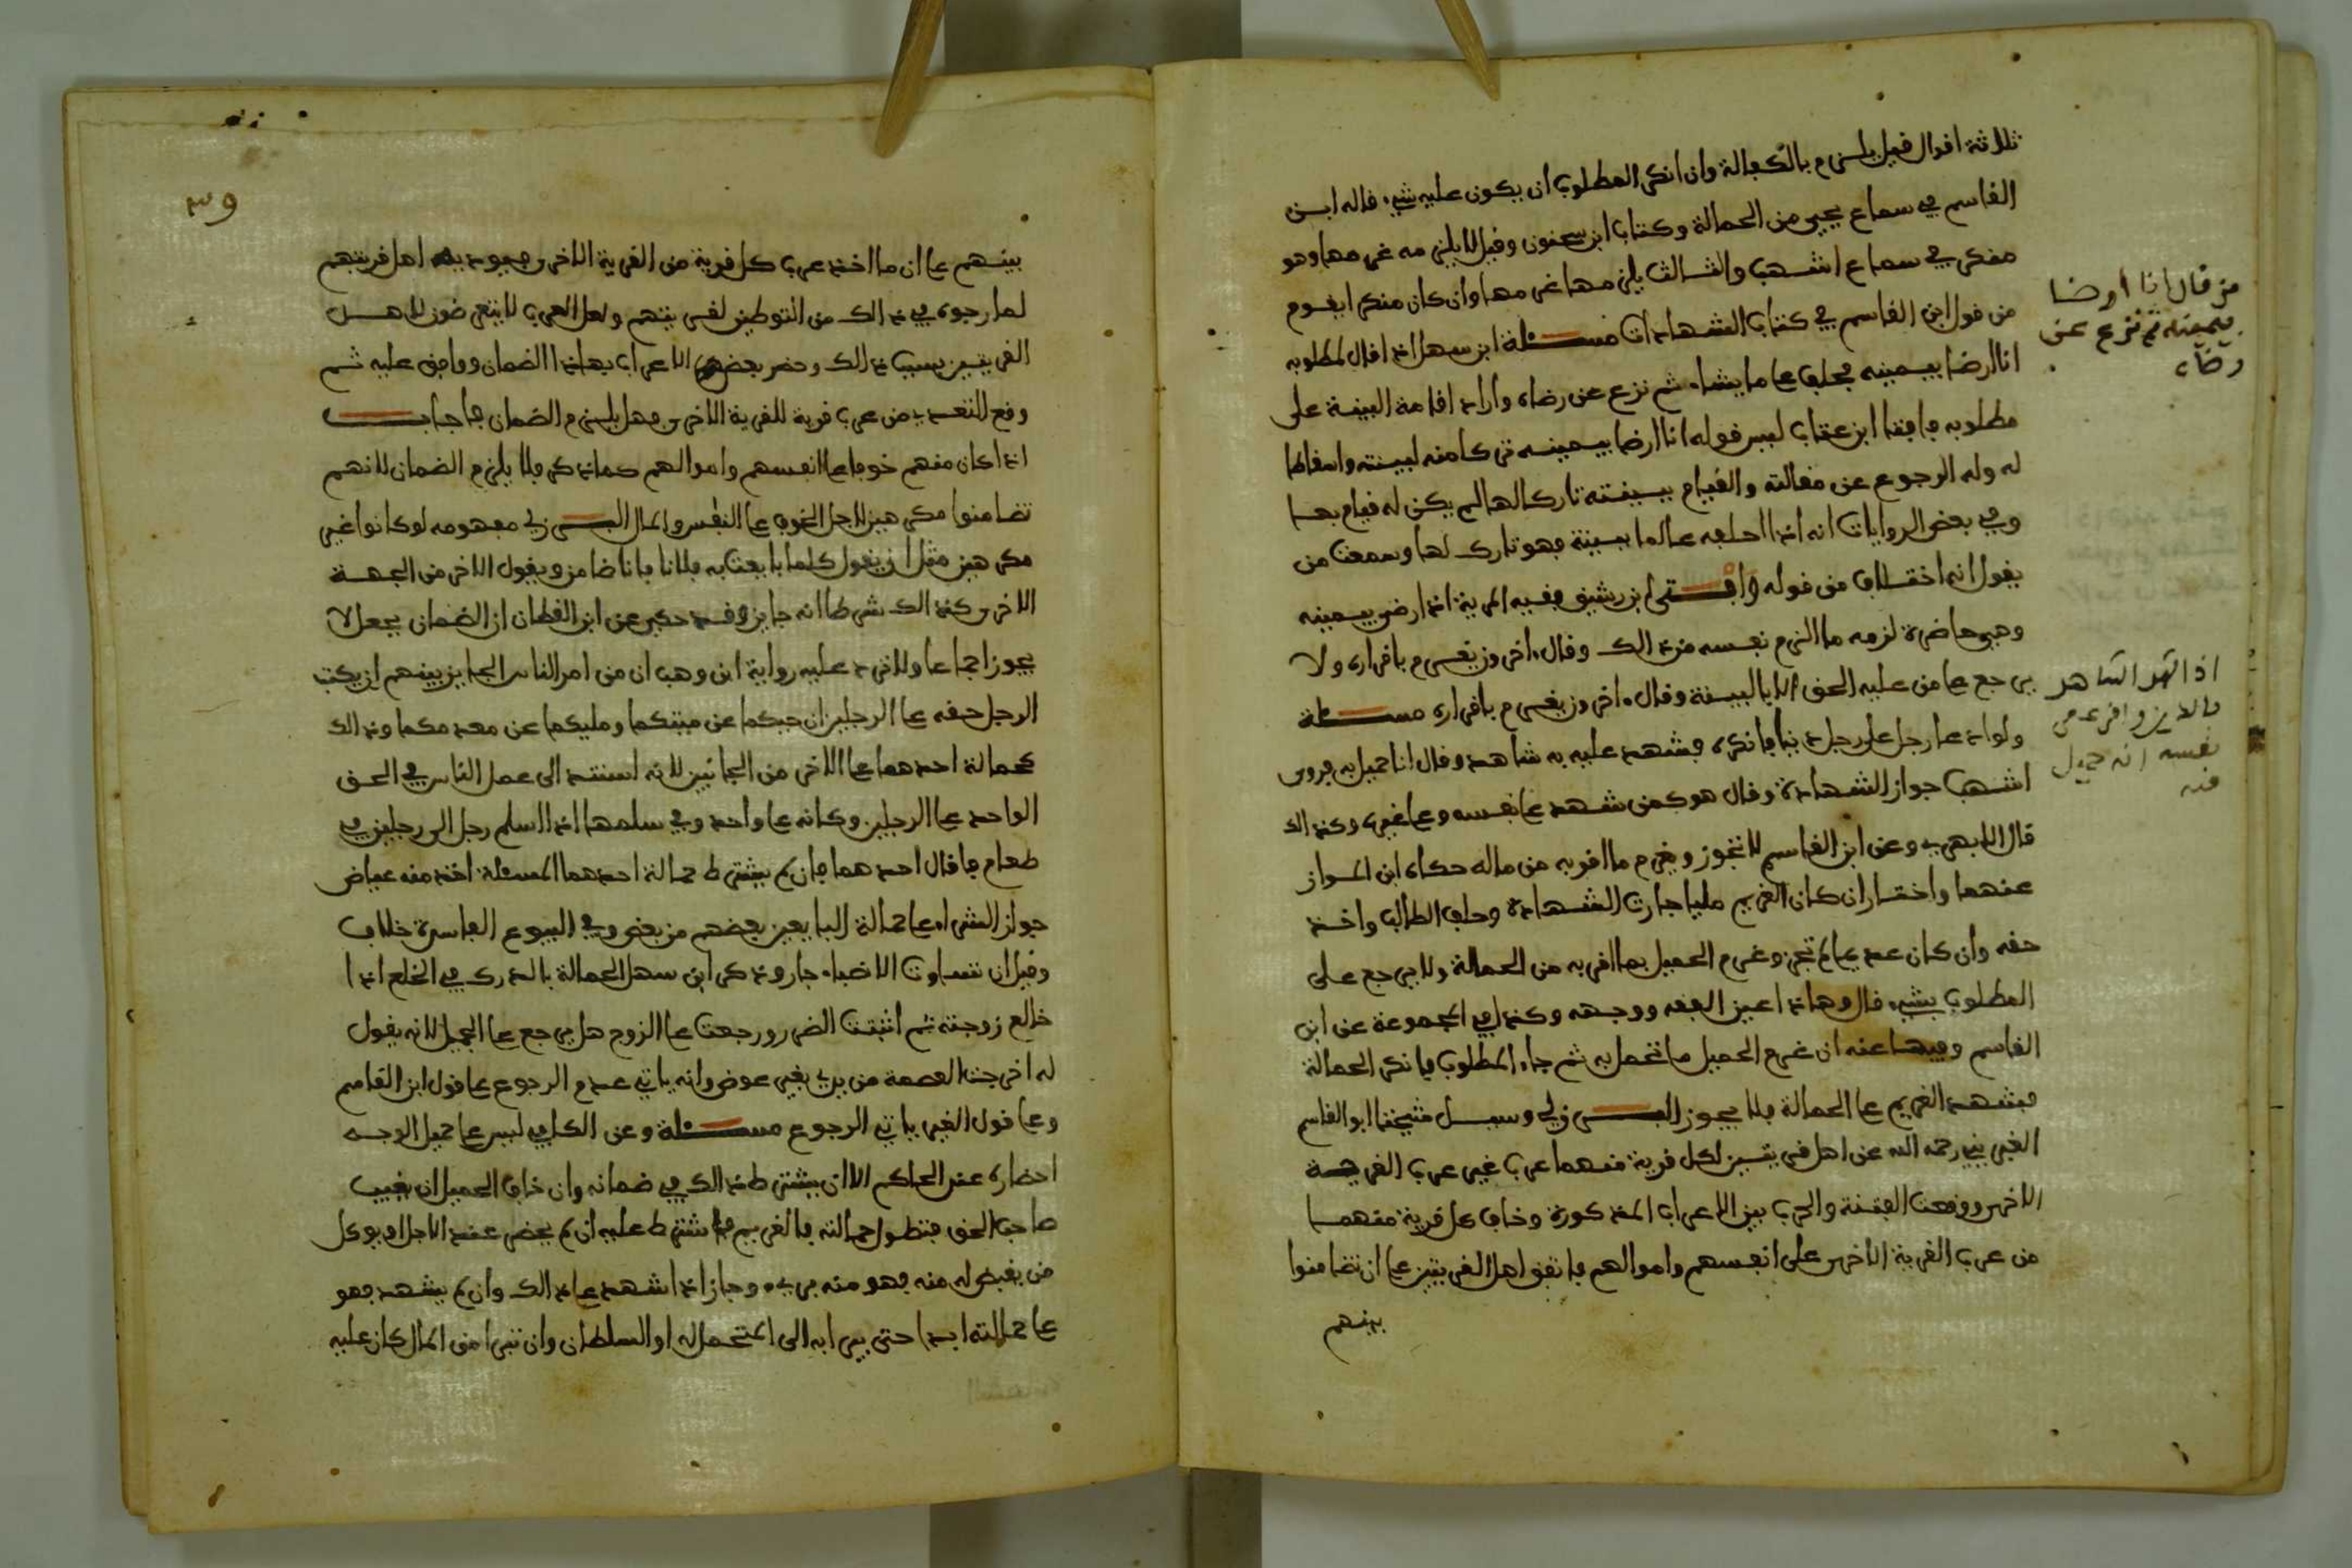 ثلاثة اقوال قيل يلزم بالكفالة وان انكر المطلوب ان يكون عليه شيء قاله ابن
القاسم في سماع يحيى من الحمالة وكتاب ابن سحنون وقيل لا يلزمه غرمها وهو
منكر في سماع اشهب والثالث يلزمها غرمها وان كان منكرا يقوم
من قول ابن القاسم في كتاب الشهادات مسئلة ابن سهل اذا قال لمطلوبه
انا ارضا بيمينه فحلف على ما يشاء ثم نزع عن رضاه واراد اقامة البينة على
مطلوبه فافتا ابن عتاب ليس قوله انا ارضا بيمينه تركا منه لبينته واسقاطا
له وله الرجوع عن مقالته والقيام ببينته تاركا لها لم يكن له قيام بها
وفي بعض الروايات انه اذا احلفه عالما ببينة فهو تارك لها وسمعت من
يقول انه اختلاف من قوله وافتى ابن رشيق فقيه المرية اذا رضي بيمينه
وهي حاضرة لزمه ما الزم نفسه من ذالك وقال اخرون يغرم باقراره ولا
يرجع على من عليه الحق الا بالبينة وقال اخرون يغرم باقراره مسئلة
ولو ادعا رجل على رجل دينا فانكره فشهد عليه به شاهد وقال انا حميل به فروى
اشهب جواز الشهادة وقال هو كمن شهد على نفسه وعلى غيره وكذالك
قال الابهري وعن ابن القاسم لا تجوز ويغرم ما اقر به من ماله حكاه ابن المواز
عنهما واختار ان كان الغريم مليا جازت الشهادة وحلف الطالب واخذ
حقه وان كان عديما لم تجز وغرم الحميل بما اقر به من الحمالة ولا يرجع على
المطلوب بشيء قال وهاذا عين الفقه ووجهه وكذا في المجموعة عن ابن
القاسم وفيها عنه ان غرم الحميل ما تحمل به ثم جاء المطلوب فانكر الحمالة
فشهد الغريم على الحمالة فلا يجوز البرزلي وسئل شيخنا ابو القاسم
الغبريني رحمه الله عن اهل قريتين لكل قرية منهما عرب غير عرب القرية
الاخرى ووقعت الفتنة والحرب بين الاعراب المذكورة وخاف كل قرية منهما
من عرب القرية الاخرى على انفسهم واموالهم فاتفق اهل القريتين على ان تضامنوا
بينهم
من قال انا ارضا
بيمينه ثم نزع عن
رضاه
اذا شهد الشاهد
بالدين واقر على
نفسه انه حميل
فيه
٣٩
بينهم على ان ما اخذ عرب كل قرية من القرية الاخرى اهل قريتهم
لما رجوه في ذالك من التوطين لقريتهم ولعل العرب لا يتعرضون لاهل
القريتين بسبب ذالك وحضر بعض الاعراب بهاذا الضمان ووافق عليه ثم
وقع التعدي من عرب قرية للقرية الاخرى فهل يلزم الضمان فاجاب
اذا كان منهم خوفا على انفسهم واموالهم كما ذكر فلا يلزم الضمان لانهم
تضامنوا مكرهين لاجل الخوف على النفس والمال البرزلي مفهومه لو كانوا غير
مكرهين مثل ان يقول كلما بايعت به فلانا فانا ضامن ويقول الاخر من الجهة
الاخرى كذالك شرطا انه جايز وقد حكي عن ابن القطان ان الضمان بجعل لا
يجوز اجماعا ولا ترد عليه رواية ابن وهب ان من امر الناس الجايز بينهم ان يكتب
الرجل حقه على الرجلين ان حيكما عن ميتكما ومليكما عن معدمكما وذالك
كحمالة احدهما على الاخر من الجانبين لانه استند الى عمل الناس في الحق
الواحد على الرجلين وكانه على واحد وفي سلمها اذا اسلم رجل الى رجلين في
طعام فاقال احدهما فان لم يشترط حمالة احدهما المسئلة اخذ منه عياض
جواز الشراء على حمالة البايعين بعضهم من بعض وفي البيوع الفاسدة خلاف
وقيل ان تساوت الانصباء جاز وذكر ابن سهل الحمالة بالدرك في الخلع اذا
خالع زوجته ثم اثبتت الضرر ورجعت على الزوج هل يرجع على الحميل لانه يقول
له اخرجت العصمة من يدي بغير عوض وانه ياتي عدم الرجوع على قول ابن القاسم
وعلى قول الغير ياتي الرجوع مسئلة وعن الكافي ليس على حميل الوجه
احضاره عند الحاكم الا ان يشترط ذالك في ضمانه وان خاف الحميل ان يغيب
صاحب الحق فتطول حمالته فالغريم شترط عليه ان لم يحضر عند الاجل او يوكل
من يقبض له منه فهو منه بريء وجاز اذا اشهد على ذالك وان لم يشهد فهو
على حمالته ابدا حتى يبرا به الى المتحمل له او السلطان وان تبرا من المال كان عليه